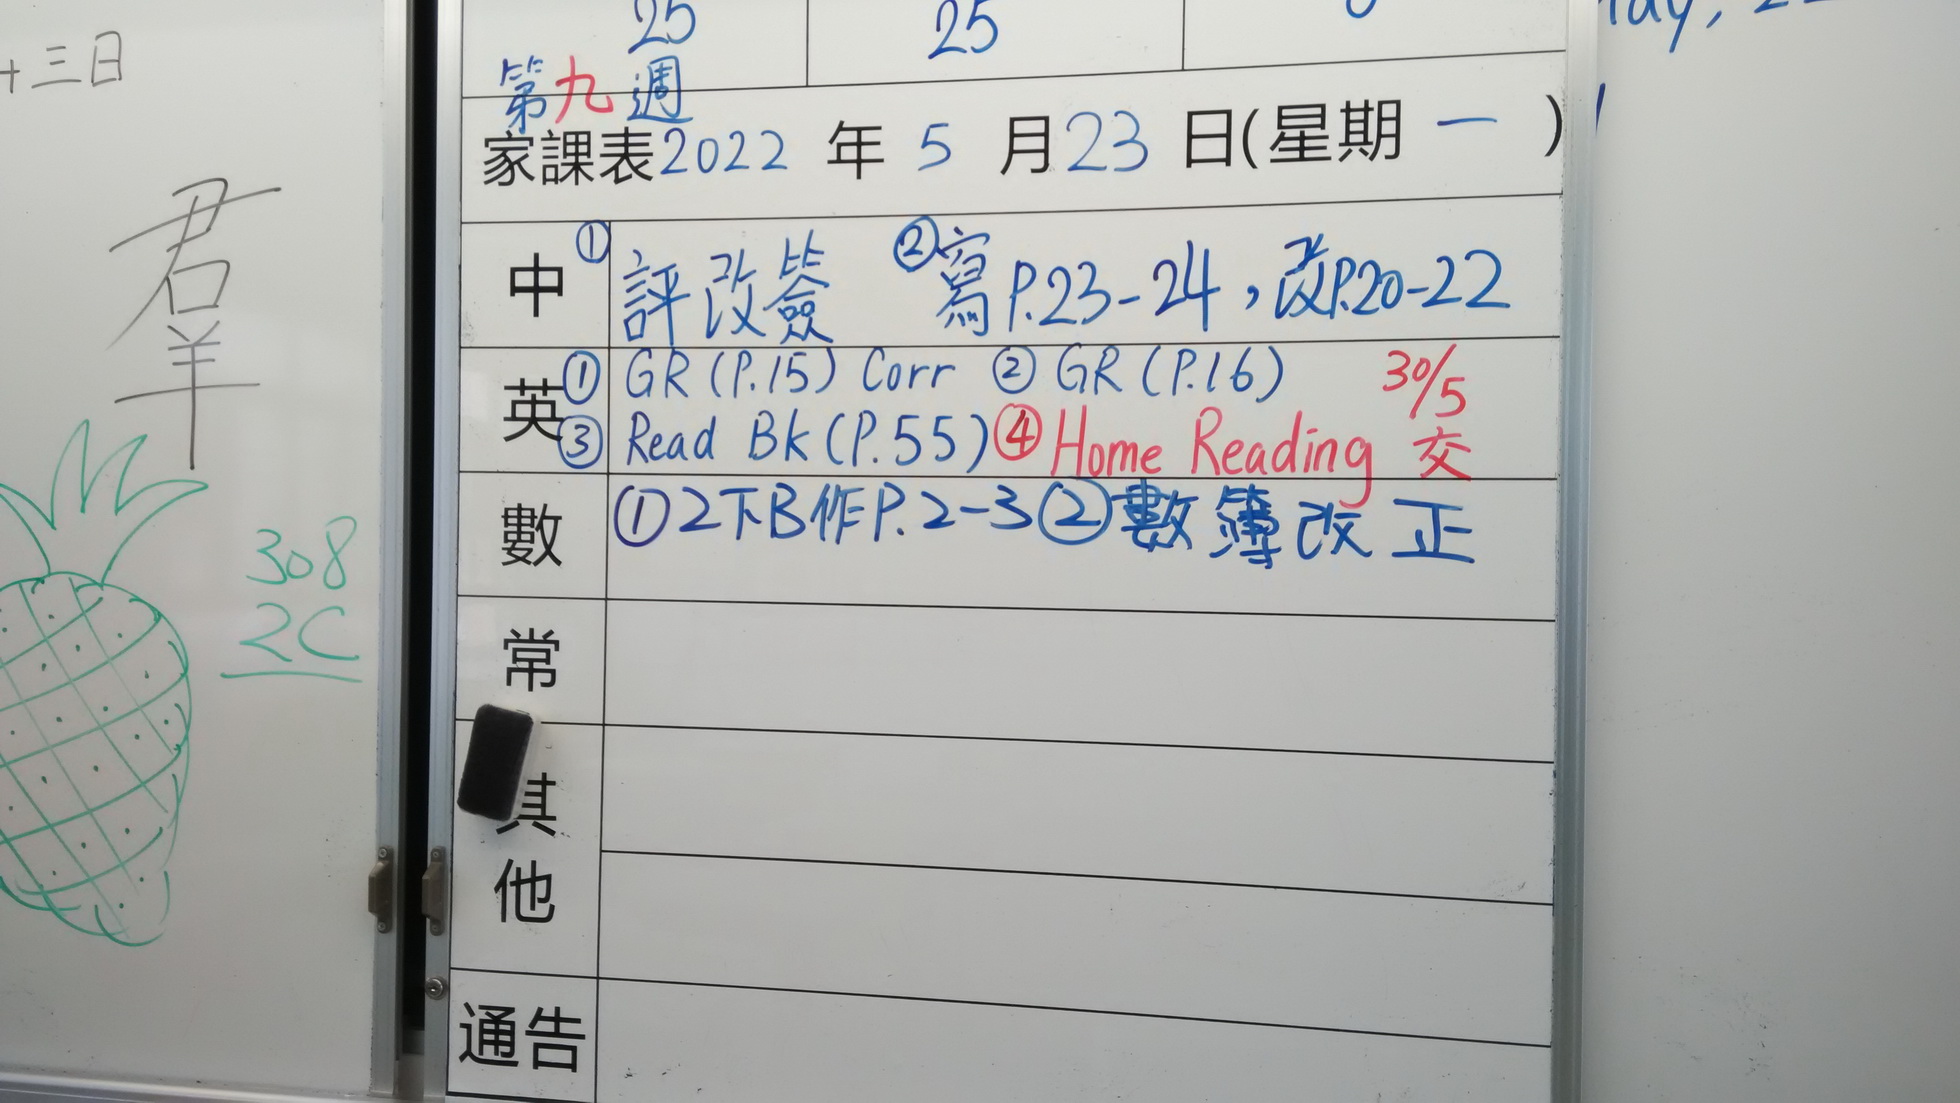 十三日
君
羊
308
2C
25 25
第九週
家課表2022年5月23日(星期一)
中 ①評改簽 ②寫P.23-24,改P.20-22
英 ①GR(P.15) Corr ②GR(P.16) 30/5
③Read Bk(P.55) ④Home Reading 交
數 ①2下B作P.2-3②數簿改正
常
其
他
通告